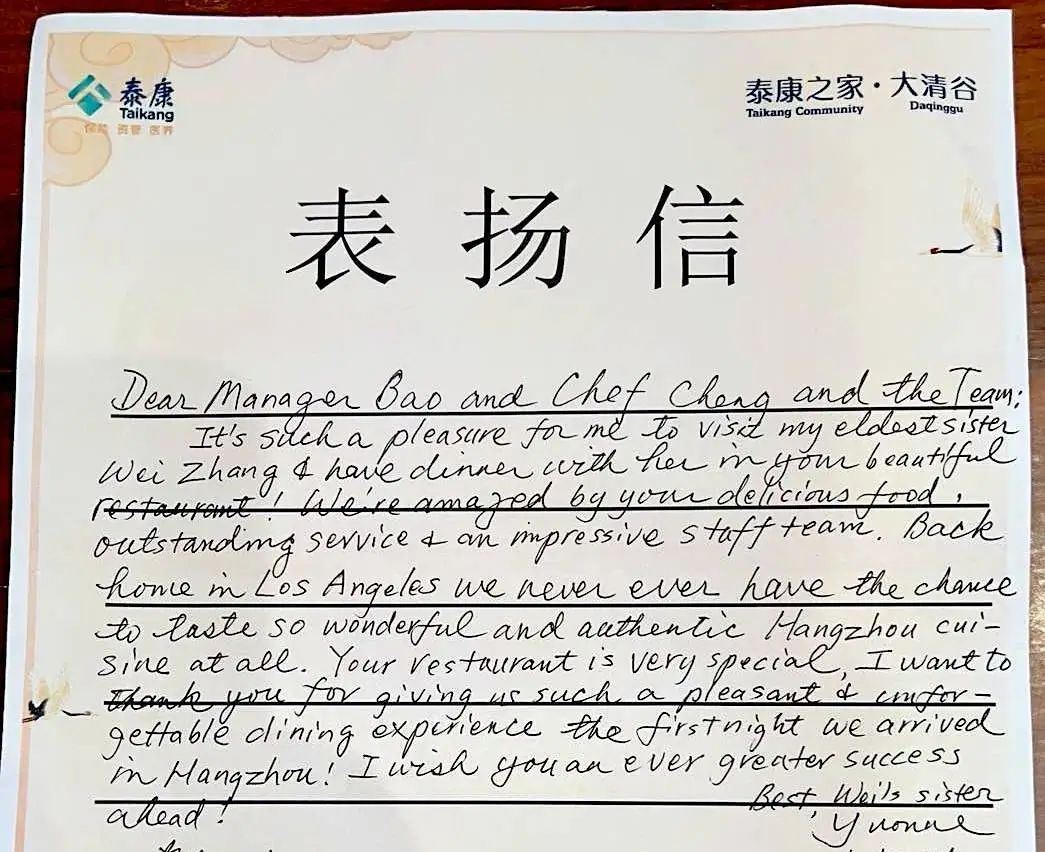 泰康
Taikang
保险 资管 医养
泰康之家·大清谷
Taikang Community Daqinggu
表扬信
Dear Manager Bao and Chef Cheng and the Team:
It's such a pleasure for me to visit my eldest sister
Wei Zhang & have dinner with her in your beautiful
restaurant! We're amazed by your delicious food,
outstanding service & an impressive staff team. Back
home in Los Angeles we never ever have the chance
to taste so wonderful and authentic Hangzhou cui-
sine at all. Your restaurant is very special, I want to
thank you for giving us such a pleasant & unfor-
gettable dining experience the first night we arrived
in Hangzhou! I wish you an ever greater success
ahead!
Best, Wei's sister
Yvonne